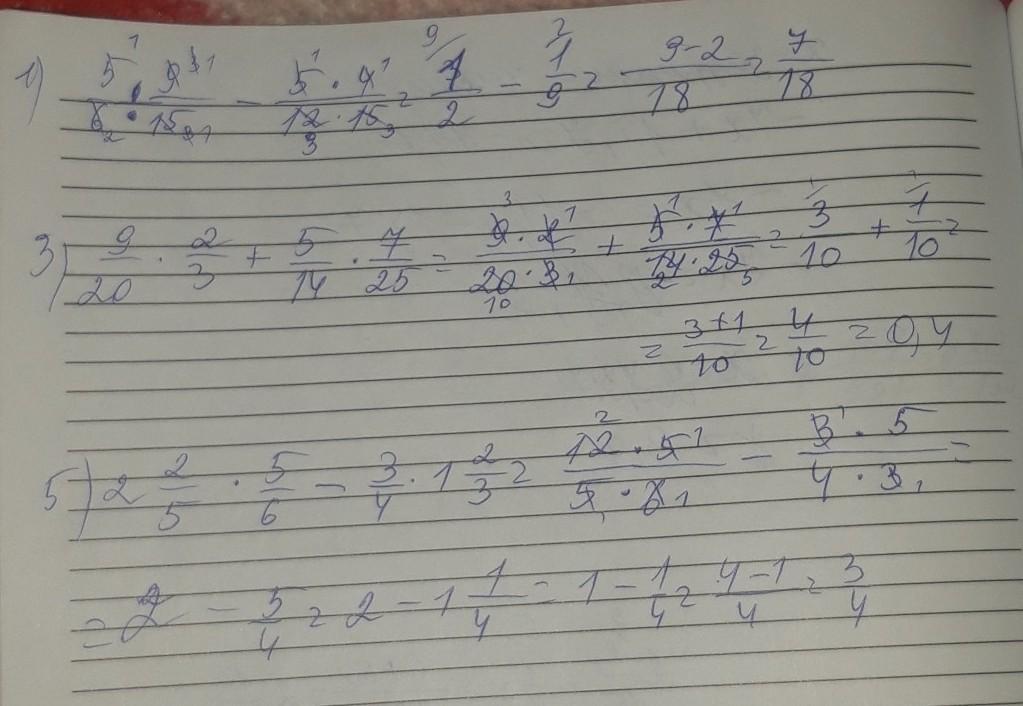 1) 5/6 · 9/15 - (5 · 4)/(12 · 15) = 1/2 - 1/9 = (9-2)/18 = 7/18
3) 9/20 · 2/3 + 5/14 · 7/25 = (9 · 2)/(20 · 3) + (5 · 7)/(14 · 25) = 3/10 + 1/10 =
= (3+1)/10 = 4/10 = 0,4
5) 2 2/5 · 5/6 - 3/4 · 1 2/3 = (12 · 5)/(5 · 6) - (3 · 5)/(4 · 3) =
= 2 - 5/4 = 2 - 1 1/4 = 1 - 1/4 = (4-1)/4 = 3/4